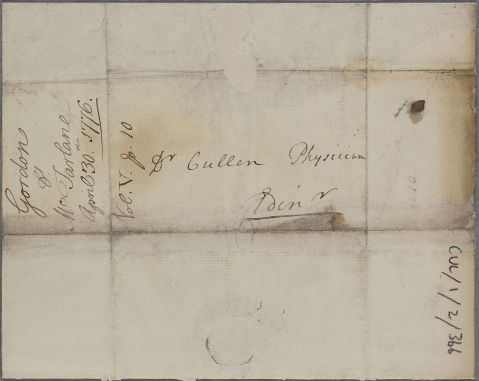 Gordon
&
Mc Farlane
April 30th. 1776.
Vol. V. p. 10
Dr Cullen Physician
Edinr
CUL/1/2/366